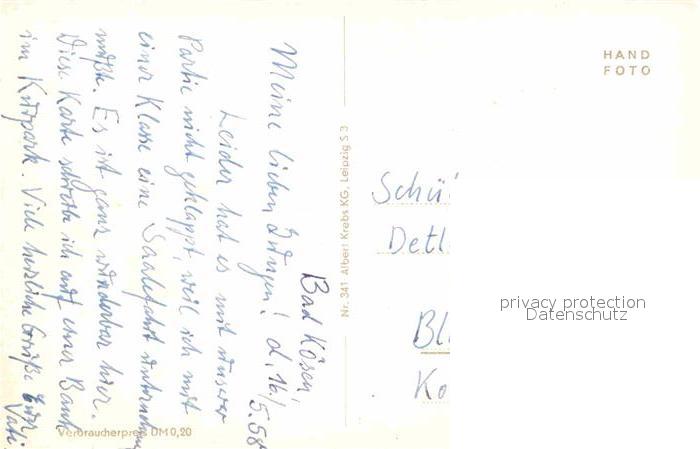 Bad Kösen,
d. 16./5. 58
Meine lieben Jungen!
Leider hat es mit unserer
Partie nicht geklappt, weil ich mit
einer Klasse eine Saalefahrt unternehmen
mußte. Es ist ganz wunderbar hier.
Diese Karte schreibe ich auf einer Bank
im Kurpark. Viele herzliche Grüße Euer
Vati.
Verbraucherpreis DM 0,20
Nr. 341 Albert Krebs KG, Leipzig S 3
HAND
FOTO
Schü
Detl
Bl
Ko
privacy protection
Datenschutz